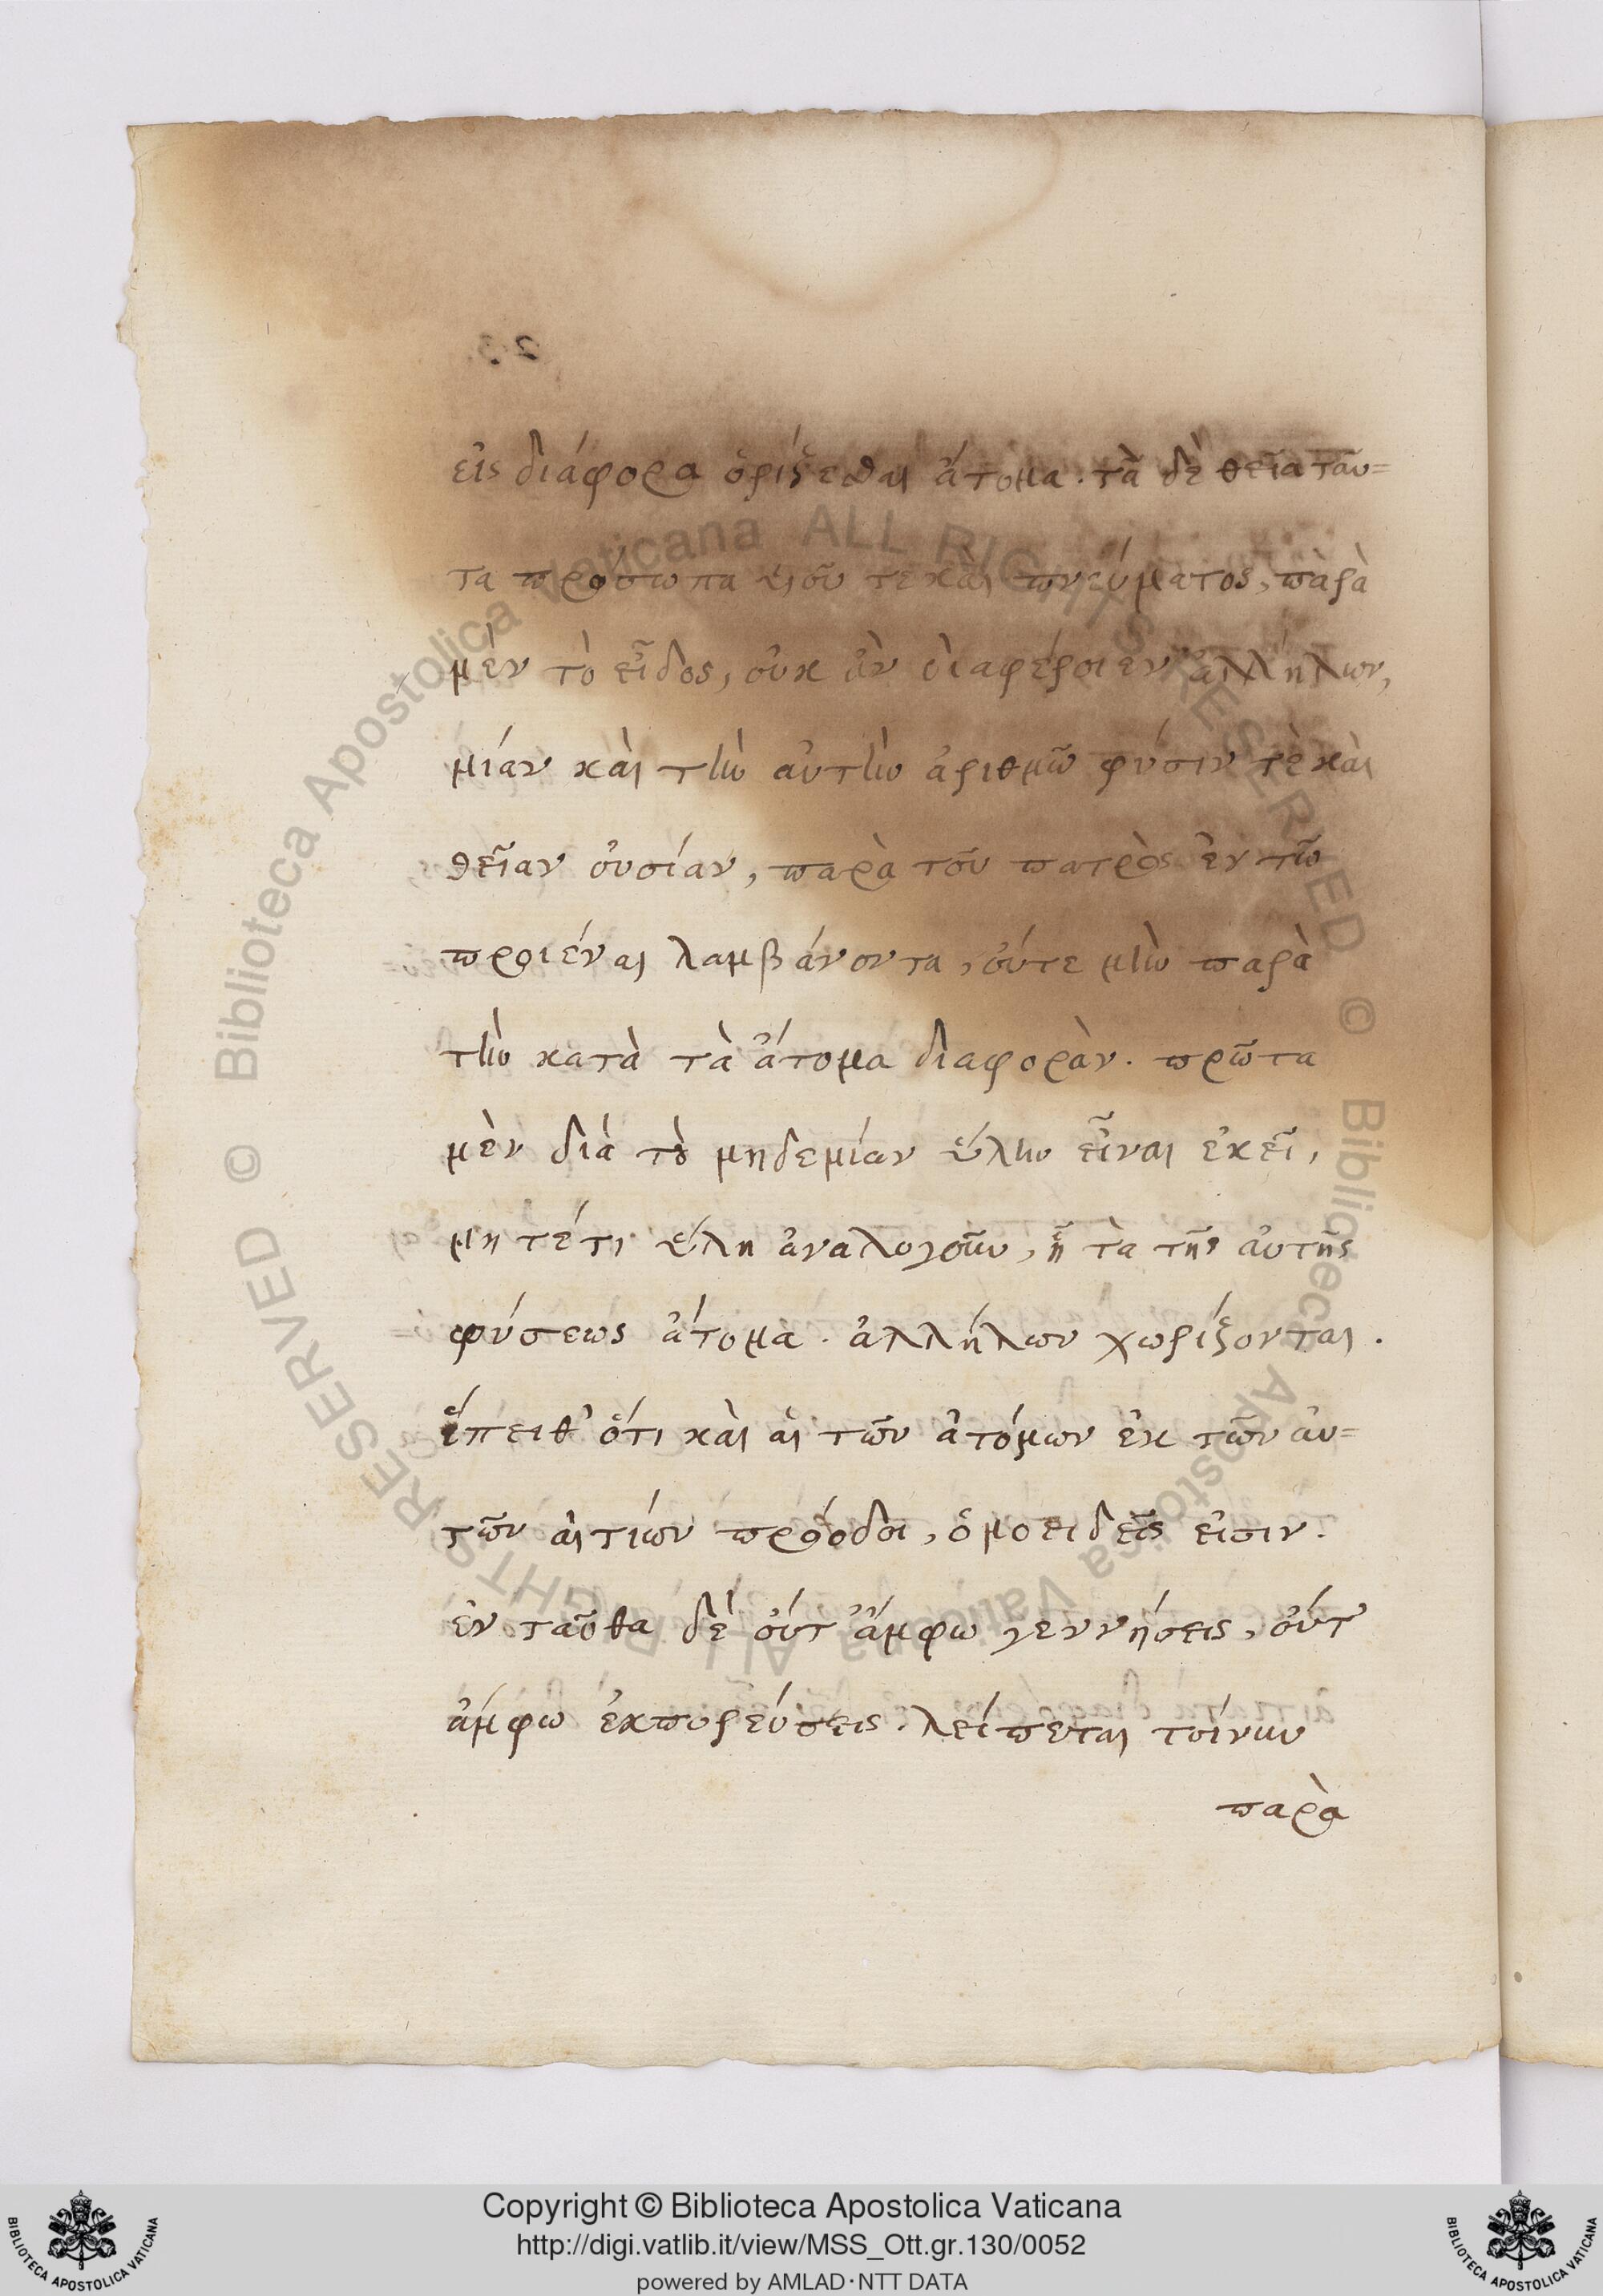 εἰς διάφορα ὁρίζεσθαι ἄτομα. τὰ δὲ θεῖα ταῦ=
τα πρόσωπα υἱοῦ τε καὶ πνεύματος, παρὰ
μὲν τὸ εἶδος, οὐκ ἂν διαφέροιεν ἀλλήλων,
μίαν καὶ τὴν αὐτὴν ἀριθμῷ φύσιν τὲ καὶ
θείαν οὐσίαν, παρὰ τοῦ πατρὸς ἐν τῷ
προιέναι λαμβάνοντα, οὔτε μὴν παρὰ
τὴν κατὰ τὰ ἄτομα διαφορὰν. πρῶτα
μὲν διὰ τὸ μηδεμίαν ὕλην εἶναι ἐκεῖ,
μήτέ τι ὕλη ἀναλογοῦν, ᾗ τὰ τῆς αὐτῆς
φύσεως ἄτομα. ἀλλήλων χωρίζονται.
ἔπειθ' ὅτι καὶ αἱ τῶν ἀτόμων ἐκ τῶν αὐ=
τῶν αἰτίων πρόοδοι, ὁμοειδεῖς εἰσιν.
ἐνταῦθα δὲ οὔτ' ἄμφω γεννήσεις, οὔτ'
ἄμφω ἐκπορεύσεις. λείπεται τοίνυν
παρὰ
Copyright © Biblioteca Apostolica Vaticana
http://digi.vatlib.it/view/MSS_Ott.gr.130/0052
powered by AMLAD·NTT DATA